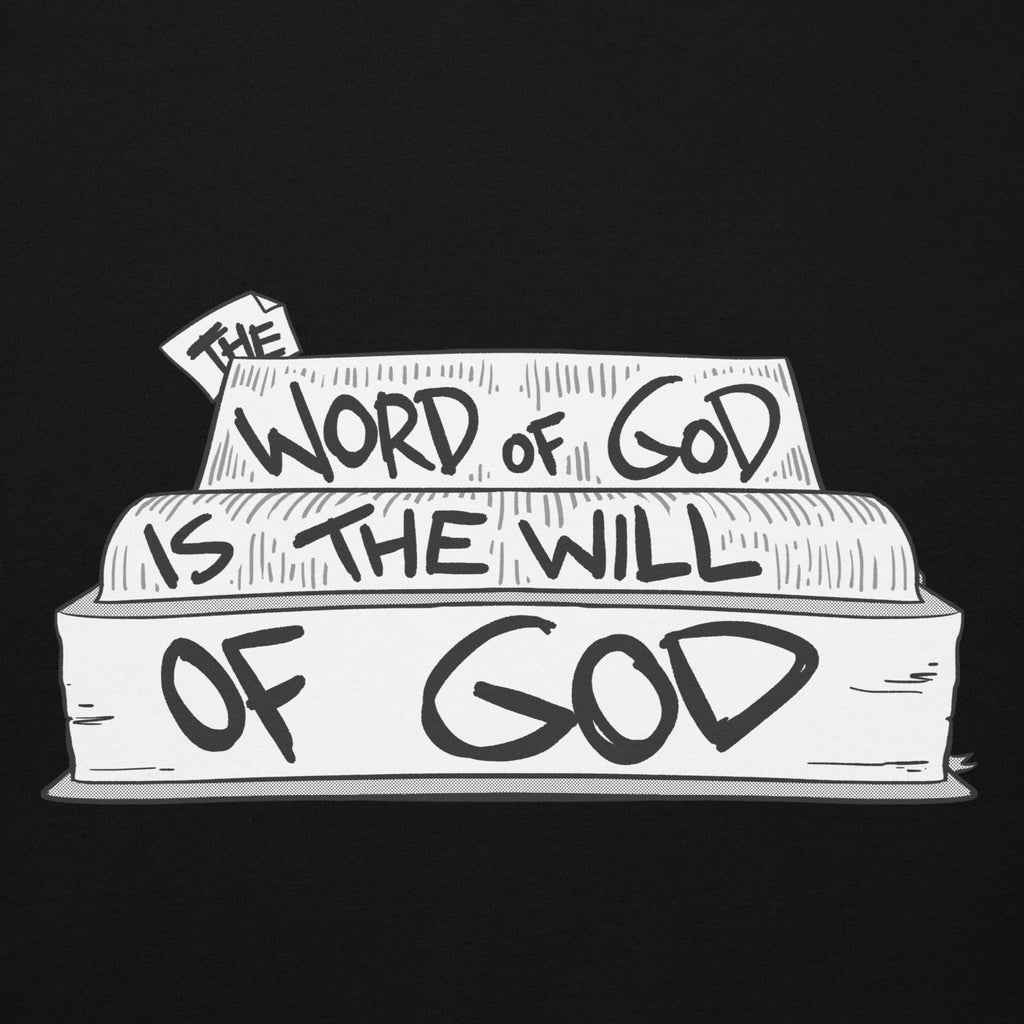 THE
WORD OF GOD
IS THE WILL
OF GOD